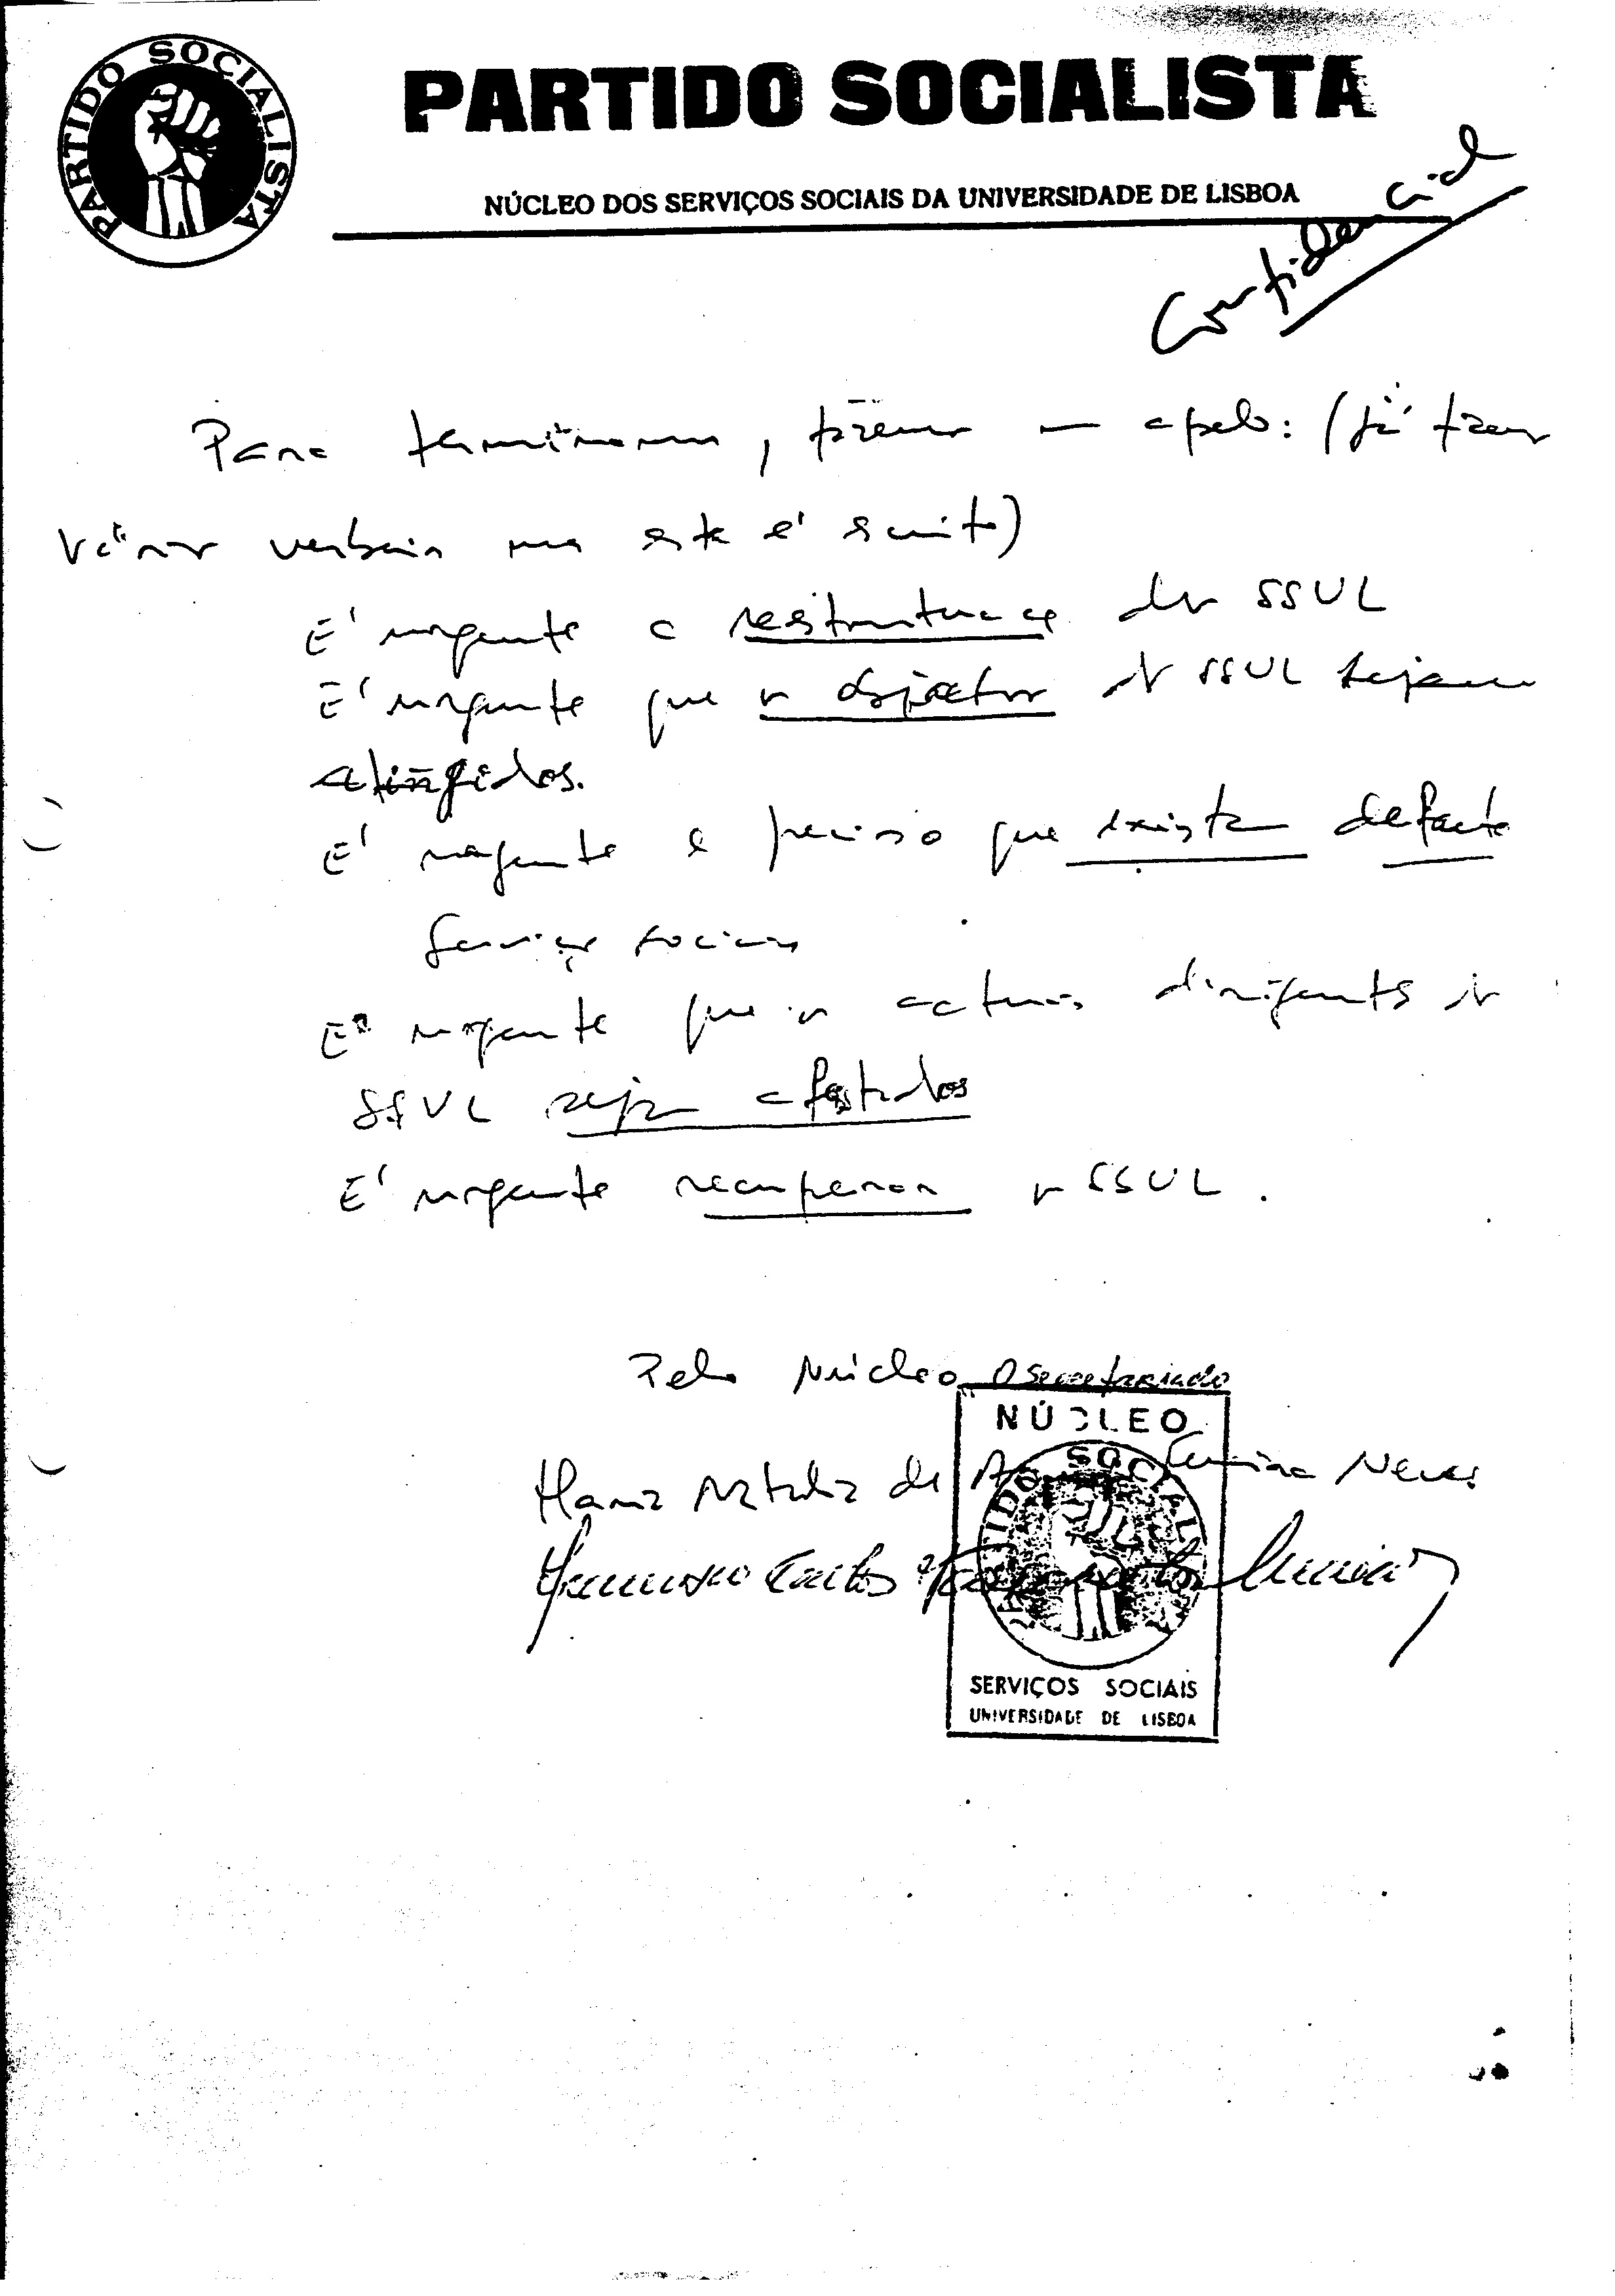 PARTIDO SOCIALISTA
PARTIDO SOCIALISTA
NÚCLEO DOS SERVIÇOS SOCIAIS DA UNIVERSIDADE DE LISBOA
Confidencial
Para terminarmos, fazemos um apelo: (já fizemos
vários verbais mas este é escrito)
É urgente a reestruturação dos SSUL
É urgente que os objectivos dos SSUL sejam
atingidos.
É urgente e preciso que existam de facto
Serviços sociais
É urgente que os actuais dirigentes dos
SSUL sejam afastados
É urgente recuperar os SSUL.
Pelo Núcleo O Secretariado
NÚCLEO
Maria Natália de Neves
Francisco Carlos
PARTIDO SOCIALISTA
SERVIÇOS SOCIAIS
UNIVERSIDADE DE LISBOA